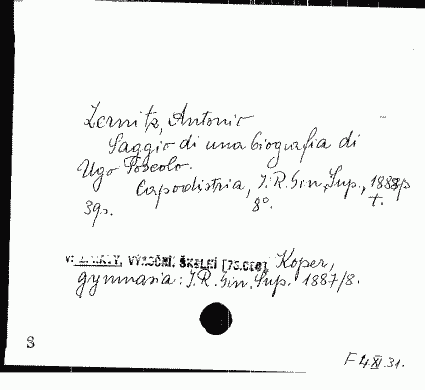 Zernitz, Antonio
Saggio di una biografia di
Ugo Foscolo.
Capodistria, I. R. Gin. Sup., 1888
39 s. 8°. t.
v: ZPRÁVY, VÝROČNÍ, ŠKOLNÍ Koper,
gymnasia: I. R. Gin. Sup. 1887/8.
S
F 4 XI. 31.